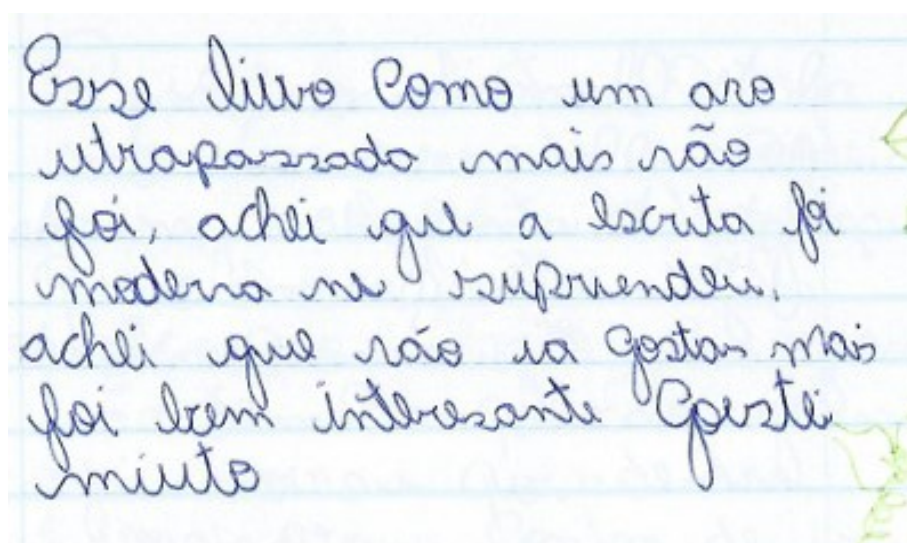 Esse livro Como um ano
utrapassado mais não
foi, achei que a escrita foi
moderna me supriendeu.
achei que não ia gostar mais
foi bem interesante Goustei
miuto